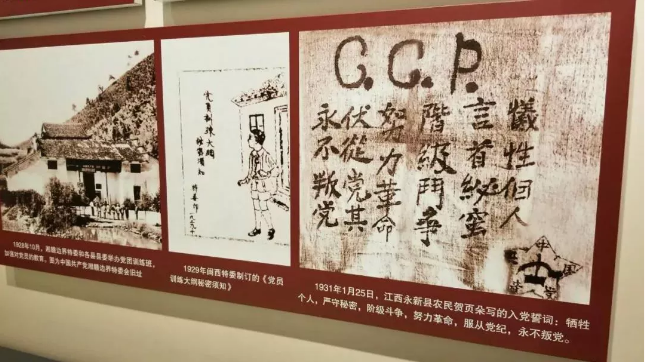 1928年10月，湘赣边界特委和各县县委举办党团训练班，
加强对党员的教育，图为中国共产党湘赣边界特委会旧址
党員訓練大綱
秘密須知
1929年闽西特委制订的《党员
训练大纲秘密须知》
C.C.P.
犧牲個人
言首秘密
階級鬥爭
努力革命
伏從党其
永不叛党
1931年1月25日，江西永新县农民贺页朵写的入党誓词：牺牲
个人，严守秘密，阶级斗争，努力革命，服从党纪，永不叛党。